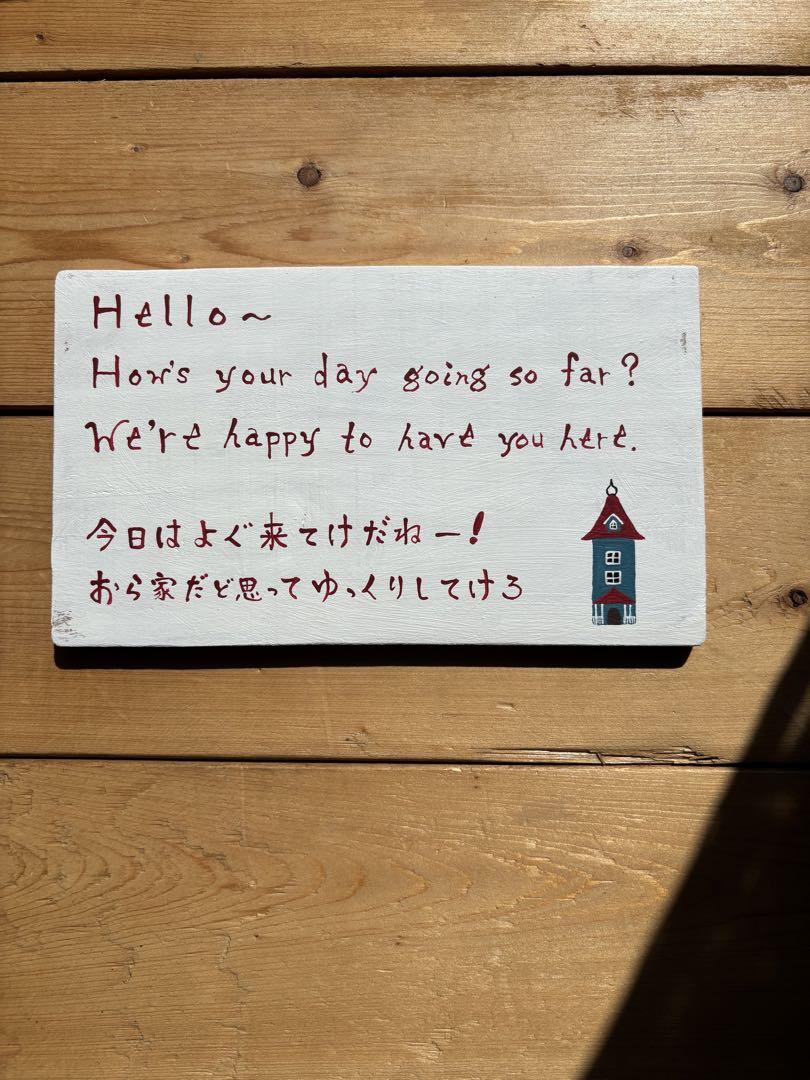 Hello~
How's your day going so far?
We're happy to have you here.
今日はよぐ来てけだねー!
おら家だど思ってゆっくりしてけろ